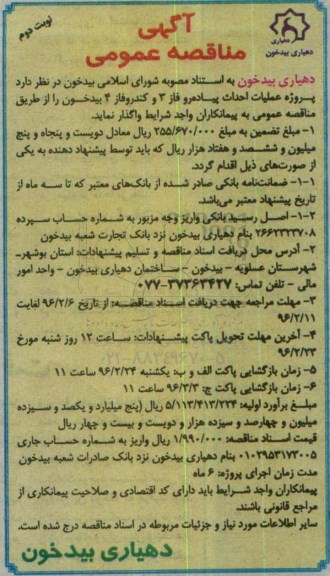 نوبت دوم
آگهی
مناقصه عمومی
دهیاری
بیدخون
دهیاری بیدخون به استناد مصوبه شورای اسلامی بیدخون در نظر دارد
پروژه عملیات احداث پیاده‌رو فاز ۳ و کندروفاز ۴ بیدخون را از طریق
مناقصه عمومی به پیمانکاران واجد شرایط واگذار نماید.
۱- مبلغ تضمین به مبلغ ۲۵۵/۶۷۰/۰۰۰ ریال معادل دویست و پنجاه و پنج
میلیون و ششصد و هفتاد هزار ریال که باید توسط پیشنهاد دهنده به یکی
از صورت‌های ذیل اقدام گردد.
۱-۱- ضمانت‌نامه بانکی صادر شده از بانک‌های معتبر که تا سه ماه از
تاریخ پیشنهاد معتبر می‌باشد.
۱-۲- اصل رسید بانکی واریز وجه مزبور به شماره حساب سپرده
۲۶۶۲۳۲۳۷۰۸ بنام دهیاری بیدخون نزد بانک تجارت شعبه بیدخون
۲- آدرس محل دریافت اسناد مناقصه و تسلیم پیشنهادات: استان بوشهر-
شهرستان عسلویه - بیدخون - ساختمان دهیاری بیدخون - واحد امور
مالی - تلفن تماس: ۳۷۳۶۳۴۲۷-۰۷۷
۳- مهلت مراجعه جهت دریافت اسناد مناقصه: از تاریخ ۹۶/۲/۶ لغایت
۹۶/۲/۱۱
۴- آخرین مهلت تحویل پاکت پیشنهادات: ساعت ۱۲ روز شنبه مورخ
۹۶/۲/۲۳
۵- زمان بازگشایی پاکت الف و ب: یکشنبه ۹۶/۲/۲۴ ساعت ۱۱
۶- زمان بازگشایی پاکت ج: ۹۶/۳/۳ ساعت ۱۱
مبلغ برآورد اولیه: ۵/۱۱۳/۴۱۳/۲۲۴ ریال (پنج میلیارد و یکصد و سیزده
میلیون و چهارصد و سیزده هزار و دویست و بیست و چهار ریال
قیمت اسناد مناقصه: ۱/۹۹۰/۰۰۰ ریال واریز به شماره حساب جاری
۰۱۰۲۹۵۳۱۷۳۰۰۵ بنام دهیاری بیدخون نزد بانک صادرات شعبه بیدخون
مدت زمان اجرای پروژه: ۶ ماه
پیمانکاران واجد شرایط باید دارای کد اقتصادی و صلاحیت پیمانکاری از
مراجع قانونی باشند.
سایر اطلاعات مورد نیاز و جزئیات مربوطه در اسناد مناقصه درج شده است.
دهیاری بیدخون